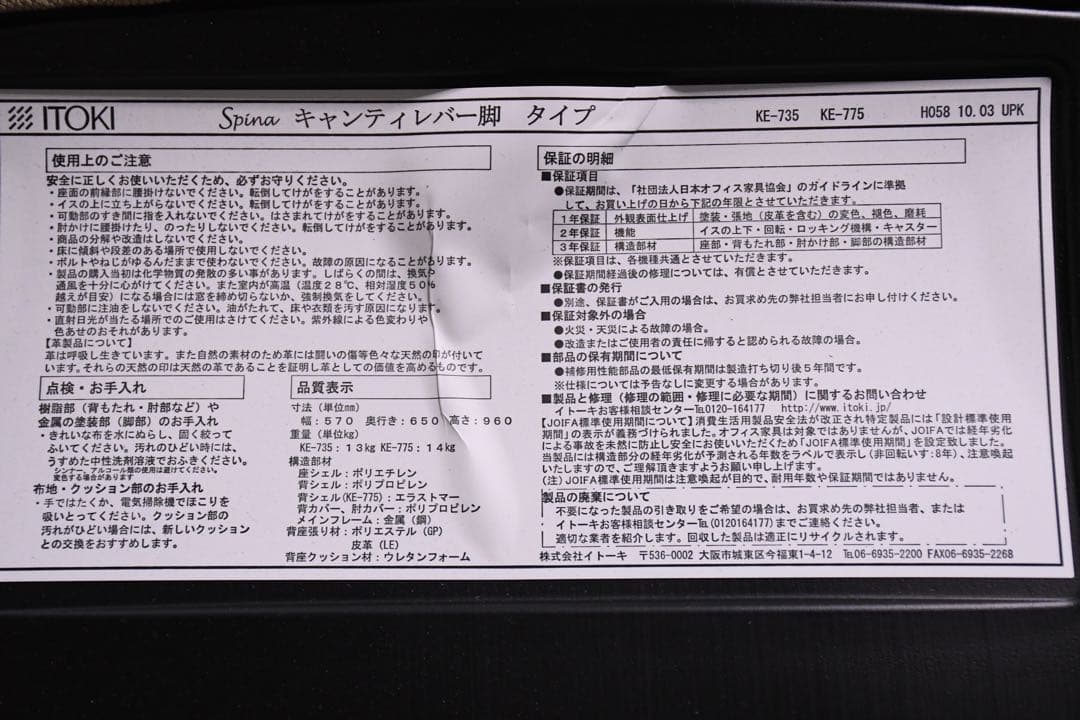 ITOKI Spina キャンティレバー脚 タイプ KE-735 KE-775 H058 10.03 UPK
使用上のご注意
安全に正しくお使いいただくため、必ずお守りください。
・座面の前縁部に腰掛けないでください。転倒してけがをすることがあります。
・イスの上に立ち上がらないでください。転倒してけがをすることがあります。
・可動部のすき間に指を入れないでください。はさまれてけがをすることがあります。
・肘かけに腰掛けたり、のったりしないでください。転倒してけがをすることがあります。
・商品の分解や改造はしないでください。
・床に傾斜や段差のある場所で使用しないでください。
・ボルトやねじがゆるんだままで使わないでください。故障の原因になることがあります。
・製品の購入当初は化学物質の発散の多い事があります。しばらくの間は、換気や
通風を十分に心がけてください。また室内が高温(温度28℃、相対湿度50%
越えが目安)になる場合には窓を締め切らないか、強制換気をしてください。
・可動部に注油をしないでください。油がたれて、床や衣類を汚す原因になります。
・直射日光が当たる場所でのご使用はさけてください。紫外線による色変わりや
色あせのおそれがあります。
【革製品について】
革は呼吸し生きています。また自然の素材のため革には闘いの傷等色々な天然の印が付いて
います。それらの天然の印は天然の革であることを証明し革としての価値を高めるものです。
点検・お手入れ
樹脂部(背もたれ・肘部など)や
金属の塗装部(脚部)のお手入れ
・きれいな布を水にぬらし、固く絞って
ふいてください。汚れのひどい時には、
うすめた中性洗剤溶液でおふきください。
シンナー、アルコール類の使用は避けてください。
変色する場合があります
布地・クッション部のお手入れ
・手ではたくか、電気掃除機でほこりを
吸いとってください。クッション部の
汚れがひどい場合には、新しいクッション
との交換をおすすめします。
品質表示
寸法(単位mm)
幅:570 奥行き:650 高さ:960
重量(単位kg)
KE-735:13kg KE-775:14kg
構造部材
座シェル:ポリエチレン
背シェル:ポリプロピレン
背シェル(KE-775):エラストマー
背カバー、肘カバー:ポリプロピレン
メインフレーム:金属(鋼)
背座張り材:ポリエステル(GP)
皮革(LE)
背座クッション材:ウレタンフォーム
保証の明細
■保証項目
●保証期間は、「社団法人日本オフィス家具協会」のガイドラインに準拠
して、お買い上げの日から下記の年限とさせていただきます。
1年保証 外観表面仕上げ 塗装・張地(皮革を含む)の変色、褪色、磨耗
2年保証 機能 イスの上下・回転・ロッキング機構・キャスター
3年保証 構造部材 座部・背もたれ部・肘かけ部・脚部の構造部材
※保証項目は、各機種共通とさせていただきます。
●保証期間経過後の修理については、有償とさせていただきます。
■保証書の発行
●別途、保証書がご入用の場合は、お買求め先の弊社担当者にお申し付けください。
■保証対象外の場合
●火災・天災による故障の場合。
●改造またはご使用者の責任に帰すると認められる故障の場合。
■部品の保有期間について
●補修用性能部品の最低保有期間は製造打ち切り後5年間です。
※仕様については予告なしに変更する場合があります。
■製品と修理(修理の範囲・修理に必要な期間)に関するお問い合わせ
イトーキお客様相談センター℡0120-164177 http://www.itoki.jp/
【JOIFA標準使用期間について】消費生活用製品安全法が改正され特定製品には「設計標準使用
期間」の表示が義務づけられました。オフィス家具は対象ではありませんが、JOIFAでは経年劣化
による事故を未然に防止し安全にお使いいただくため「JOIFA標準使用期間」を設定致しました。
当製品には構造部分の経年劣化が予測される年数をラベルで表示し(非回転いす:8年)、注意喚起
いたしますので、ご理解頂きますようお願い申し上げます。
(注)JOIFA標準使用期間は注意喚起が目的で、耐用年数や保証期間ではありません。
製品の廃棄について
不要になった製品の引き取りをご希望の場合は、お買求め先の弊社担当者、または
イトーキお客様相談センター℡(0120164177)までご連絡ください。
適切な業者を紹介します。回収した製品は適正にリサイクルされます。
株式会社イトーキ 〒536-0002 大阪市城東区今福東1-4-12 ℡06-6935-2200 FAX06-6935-2268